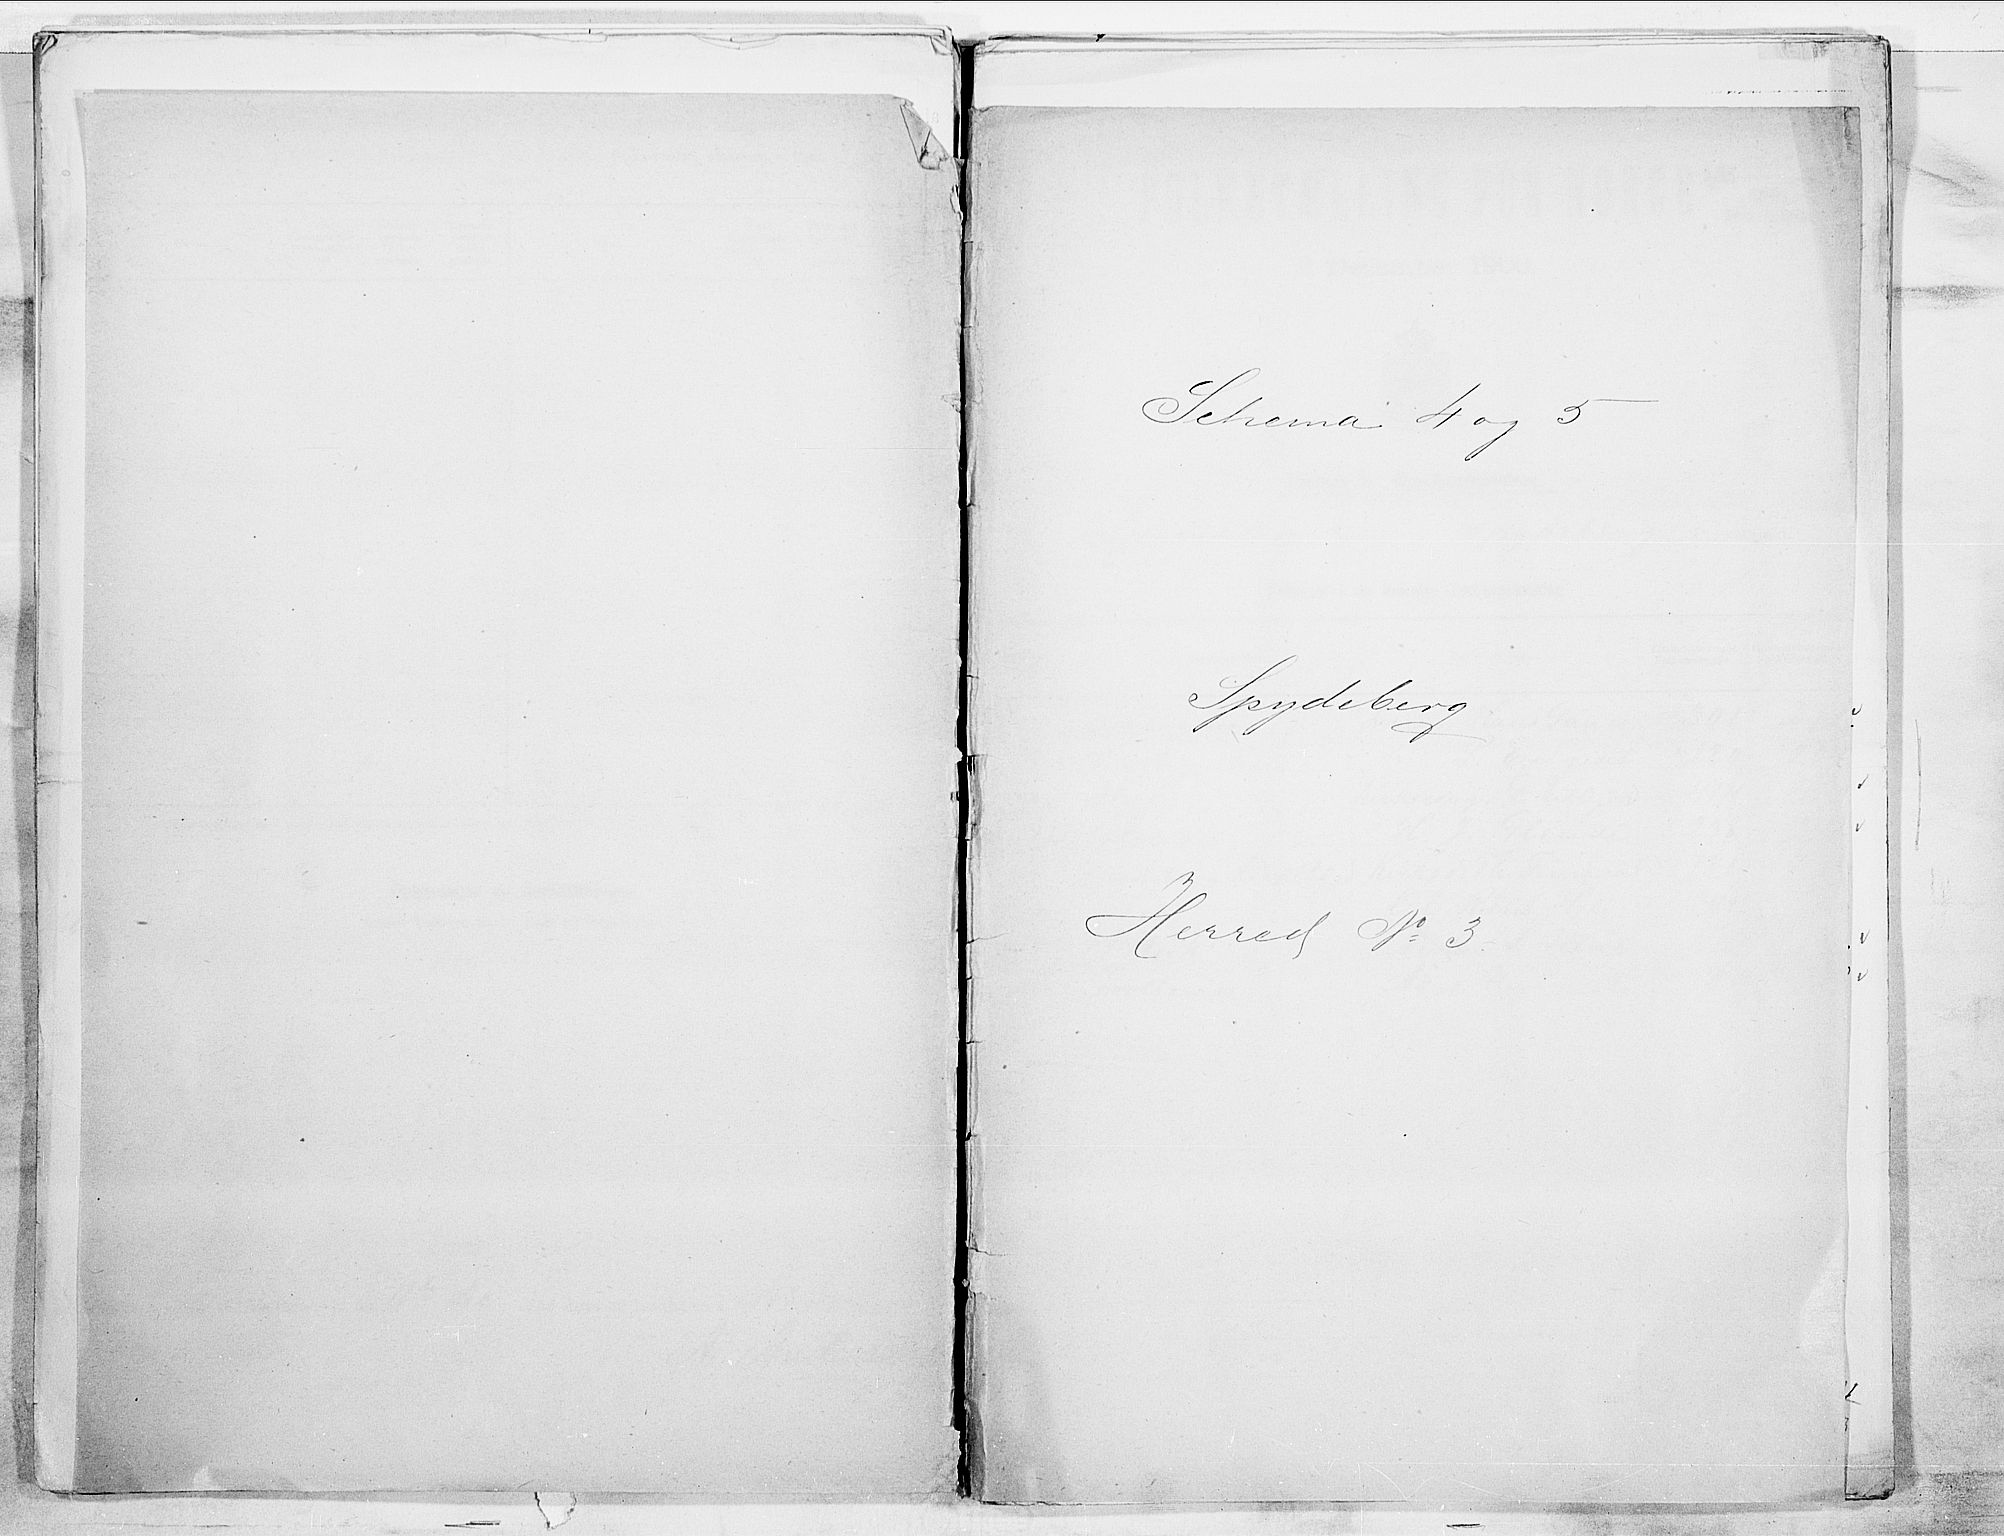 Schema 4 og 5
Spydeberg
Herred № 3.